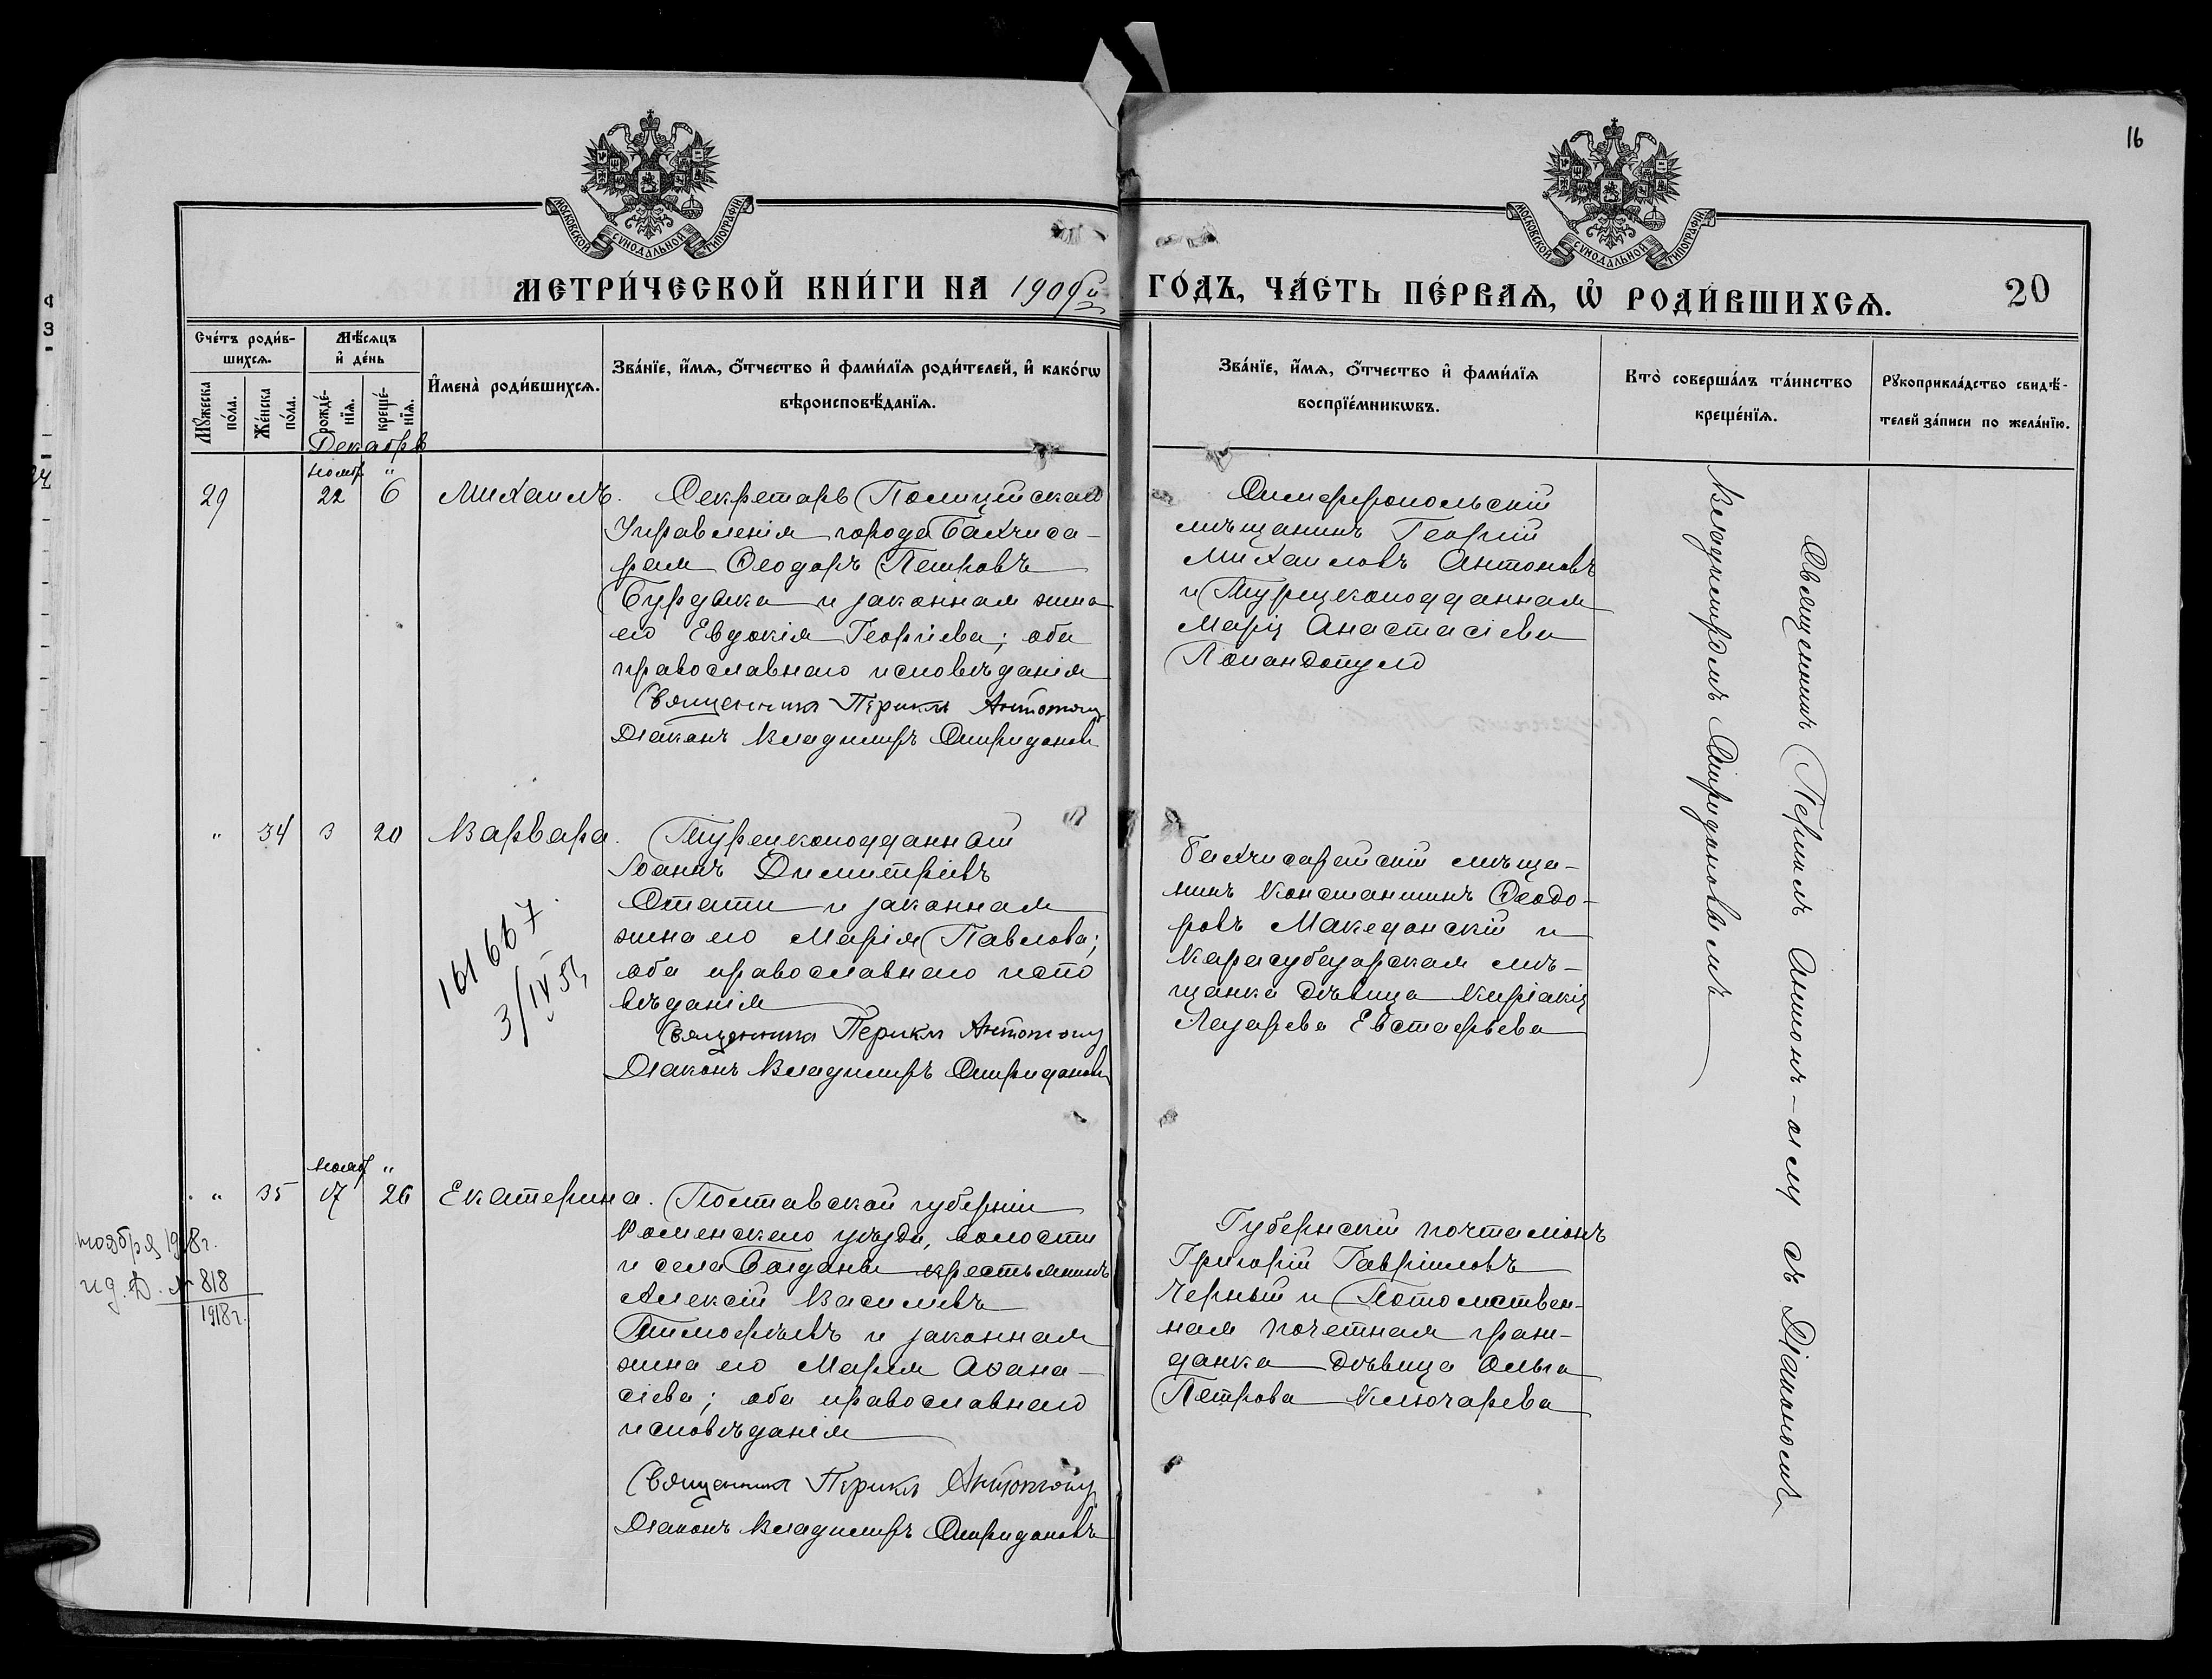 16
МОСКОВСКОЙ СѴНОДАЛЬНОЙ ТИПОГРАФІИ
МОСКОВСКОЙ СѴНОДАЛЬНОЙ ТИПОГРАФІИ
МЕТРИ́ЧЕСКОЙ КНИ́ГИ НА 1909й ГО́ДЪ, ЧА́СТЬ ПЕ́РВАѦ, Ѡ҆ РОДИ́ВШИХСѦ.
20
Сче́тъ роди́в-
шихсѧ.
Мꙋ́жеска по́ла.
Же́нска по́ла.
Мѣ́сѧцъ
и҆ де́нь
рожде́-нїѧ.
креще́-нїѧ.
И҆мена̀ роди́вшихсѧ.
Зва́нїе, и҆́мѧ, ѻ҆́тчество и҆ фами́лїѧ роди́телей, и҆ како́гѡ
вѣроисповѣ́данїѧ.
Зва́нїе, и҆́мѧ, ѻ҆́тчество и҆ фами́лїѧ
воспрїе́мникѡвъ.
Кто̀ соверша́лъ та́инство
креще́нїѧ.
Рꙋкоприкла́дство свидѣ́-
телей за́писи по жела́нїю.
Декабрь
Ноябр "
29 22 6 Михаилъ.
Секретарь Полицейскаго
Управленія города Бахчиса-
рая Ѳеодоръ Петровъ
Бурдака и законная жена
его Евдокія Георгіева; оба
православнаго исповѣданія
Священникъ Периклъ Антоноглу
Діаконъ Владимиръ Спиридоновъ
Симферопольскій
мѣщанинъ Георгій
Михаиловъ Антоновъ
и Турецкоподданная
Марія Анастасіева
Попандопуло
Священникъ Периклъ Антон-оглу съ Діакономъ
Владимиромъ Спиридоновымъ
" 34 3 20 Варвара.
Турецкоподданный
Іоаннъ Димитріевъ
Стати и законная
жена его Марія Павлова;
оба православнаго испо
вѣданія
Священникъ Периклъ Антоноглу
Діаконъ Владимиръ Спиридоновъ
161667
3/IV 57
Бахчисарайскій мѣща-
нинъ Константинъ Ѳеодо-
ровъ Македонскій и
Карасубазарская мѣ-
щанка дѣвица Киріакія
Лазарева Евстафьева
Ноябр "
" 35 17 26 Екатерина.
Полтавской губерніи
Роменскаго уѣзда, волости
и села Богданы крестьянинъ
Алексій Василіевъ
Тимофѣевъ и законная
жена его Марія Аѳана-
сіева; оба православнаго
исповѣданія
Священникъ Периклъ Антоноглу
Діаконъ Владимиръ Спиридоновъ
ноября 1918г.
№ 818
1918г.
Губернскій почталіонъ
Григорій Гавріиловъ
Черный и Потомствен-
ная почетная граж-
данка дѣвица Ольга
Петрова Ключарева